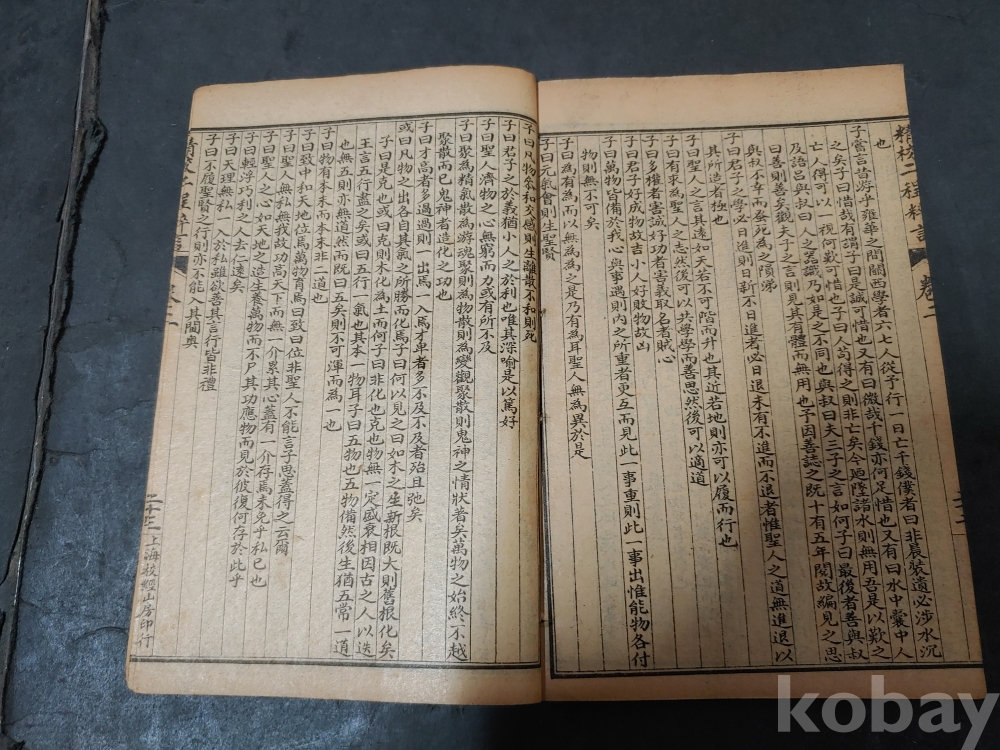 精校二程粹言 卷二
也
子嘗言昔游乎雍華之間關西學者六七人從予行一日亡千錢僕者曰非晨裝遺必涉水沉
之矣子曰惜哉有謂子曰是誠可惜也又有曰微哉千錢亦何足惜也又有曰水中囊中人
亡人得可以一視何歎可惜也子曰人苟得之則非亡矣今迺墜諸水則無用吾是以歎之
及語呂與叔曰人之器識乃如是之不同也與叔曰夫三子之言如何子曰最後者善與叔
曰善則善矣觀夫子之言則見其有體而無用也予因善誌之既十有五年閱故編見之思
與叔不幸而蚤死為之隕涕
子曰君子之學必日進則日新不日進者必日退未有不進而不退者惟聖人之道無進退以
其所造者極也
子曰聖人之言其遠如天若不可階而升也其近若地則亦可以履而行也
子曰有求為聖人之志然後可以共學學而善思然後可以適道
子曰多權者害誠好功者害義取名者賊心
子曰君子好成物故吉小人好敗物故凶
子曰萬物皆備於我心與事遇則內之所重者更互而見此一事重則此一事出惟能物各付
物則無不可矣
子曰為有為而以無為為之是乃有為耳聖人無為異於是
子曰元氣會則生聖賢
子曰凡物參和交感則生離散不和則死
子曰君子之於義猶小人之於利也唯其深喻是以篤好
子曰聖人濟物之心無窮而力或有所不及
子曰聚為精氣散為游魂聚則為物散則為變觀聚散則鬼神之情狀著矣萬物之始終不越
聚散而已鬼神者造化之功也
子曰才高者多過過則一出焉一入焉才卑者多不及不及者殆且弛矣
或曰凡物之出各自其氣之所勝而化焉子曰何以見之曰如木之生新根既大則舊根化矣
子曰是克也或曰克則木化為土而何子曰非化也克也物無一定盛衰相因古之人以迭
王言五行盡之矣或曰五行一氣也其本一物耳子曰五物也五物備然後生猶五常一道
也無五則亦無道然而既曰五矣則不可渾而為一也
子曰物有本末而本末非二道也
子曰致中和天地位焉萬物育焉曰致曰位非聖人不能言子思蓋得之云爾
子曰聖人無私無我故功高天下而無一介累其心蓋有一介存焉未免乎私己也
子曰聖人之心如天地之造生養萬物而不尸其功應物而見於彼復何存於此乎
子曰輕浮巧利之人去仁遠矣
子曰天理無私一入於私雖欲善其言行皆非禮
子曰不履聖賢之行則亦不能入其閫奧
精校二程粹言 卷二
二十三 上海校經山房印行
kobay